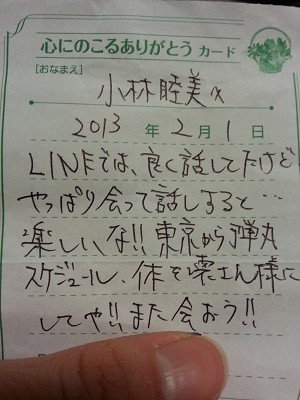 心にのこるありがとう カード
[おなまえ]
小林睦美
2013 年 2 月 1 日
LINEでは、良く話してたけど
やっぱり会って話しすると…
楽しいな!!東京から弾丸
スケジュール、体を壊さん様に
してや!!また会おう!!